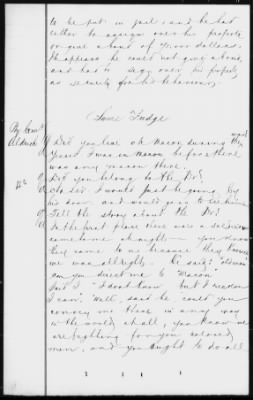 to be put in jail, and he had
either to assign over his property
or give a bond of 15,000 dollars.
He appears he could not give a bond,
and had to assign over his property
as security for his behaviour.
Love Fudge
By Com
Aldrich
Q Did you live at Macon during the war
A Yes sir I was in Macon before there
was any macon there.
Q Did you belong to the
A No sir. I would just be going by
his door and would going to see him
Q Tell the story about the
A In the first place there were a
some to me at night - You know
they come to me because they knew
me was all right. He said: "
can you direct me to Macon"
Said I "I dont know but I reckon
I can". Well, said he could you
convey me there in any way
in the world at all, you know we
are fighting for you colored
men, and you ought to do all